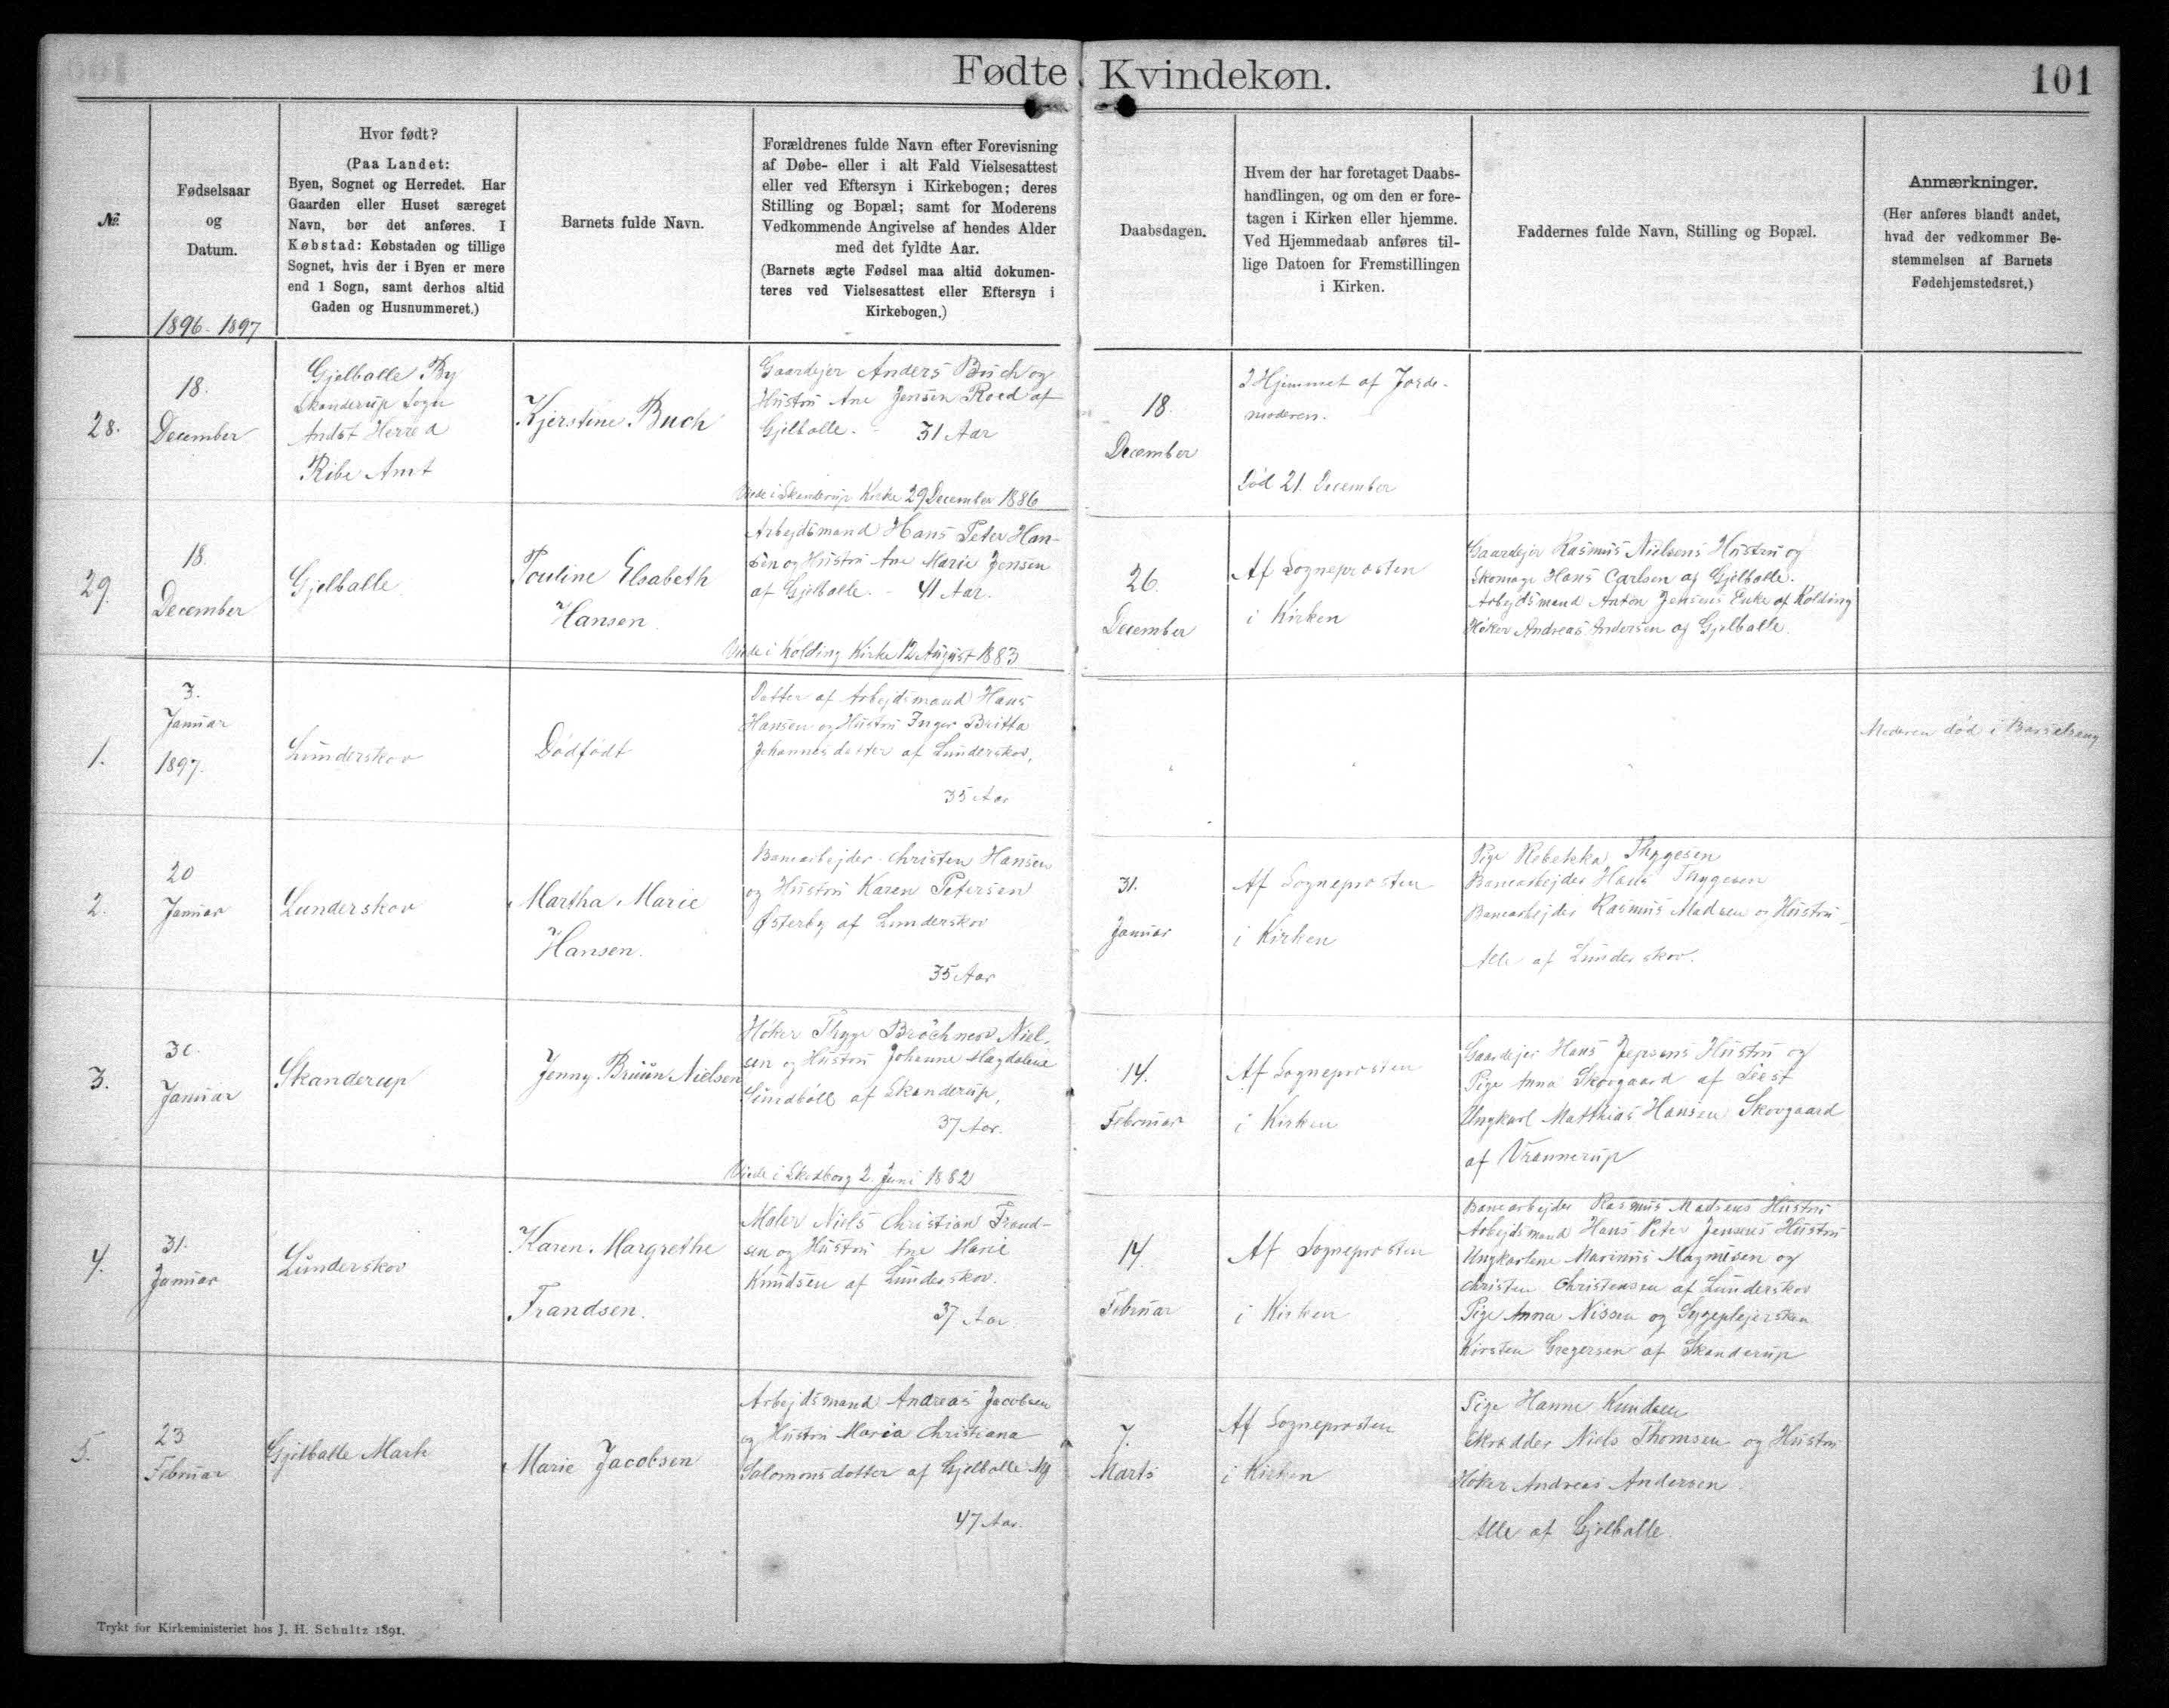 Fødte Kvindekøn.
101
№
Fødselsaar
og
Datum.
1896-1897
Hvor født?
(Paa Landet:
Byen, Sognet og Herredet. Har
Gaarden eller Huset særeget
Navn, bør det anføres. I
Købstad: Købstaden og tillige
Sognet, hvis der i Byen er mere
end 1 Sogn, samt derhos altid
Gaden og Husnummeret.)
Barnets fulde Navn.
Forældrenes fulde Navn efter Forevisning
af Døbe- eller i alt Fald Vielsesattest
eller ved Eftersyn i Kirkebogen; deres
Stilling og Bopæl; samt for Moderens
Vedkommende Angivelse af hendes Alder
med det fyldte Aar.
(Barnets ægte Fødsel maa altid dokumen-
teres ved Vielsesattest eller Eftersyn i
Kirkebogen.)
Daabsdagen.
Hvem der har foretaget Daabs-
handlingen, og om den er fore-
tagen i Kirken eller hjemme.
Ved Hjemmedaab anføres til-
lige Datoen for Fremstillingen
i Kirken.
Faddernes fulde Navn, Stilling og Bopæl.
Anmærkninger.
(Her anføres blandt andet,
hvad der vedkommer Be-
stemmelsen af Barnets
Fødehjemstedsret.)
28.
18.
December
Gjelballe By
Skanderup Sogn
Andst Herred
Ribe Amt
Kjerstine Buch
Gaardejer Anders Buch og
Hustru Ane Jensen Roed af
Gjelballe. - 31 Aar
Viede i Skanderup Kirke 29 December 1886
18.
December
I Hjemmet af Jorde-
moderen.
Død 21. December
29.
18.
December
Gjelballe
Pouline Elsabeth
Hansen.
Arbejdsmand Hans Peter Han-
sen og Hustru Ane Marie Jensen
af Gjelballe. - 41 Aar.
Viede i Kolding Kirke 12 August 1883
26.
December
Af Sogneprosten
i Kirken
Gaardejer Rasmus Nielsens Hustru og
Skomager Hans Carlsen af Gjelballe.
Arbejdsmand Anton Jensens Enke af Kolding
Høker Andreas Andersen af Gjelballe.
1.
3.
Januar
1897.
Lunderskov
Dødfødt
Datter af Arbejdsmand Hans
Hansen og Hustru Inger Britta
Johannesdatter af Lunderskov,
35 Aar
Moderen død i Barselseng
2.
20
Januar
Lunderskov
Martha Marie
Hansen.
Banearbejder Christen Hansen
og Hustru Karen Petersen
Østerby af Lunderskov
35 Aar
31.
Januar
Af Sogneprosten
i Kirken
Pige Rebekka Thygesen
Banearbejder Hans Thygesen
Banearbejder Rasmus Madsen og Hustru
Alle af Lunderskov.
3.
30.
Januar
Skanderup
Jenny Bruun Nielsen
Høker Thyge Brochner Niel-
sen og Hustru Johanne Magdalene
af Skanderup,
37 Aar.
Viede i Skodborg 2. Juni 1882
14.
Februar
Af Sogneprosten
i Kirken
Gaardejer Hans Jepsens Hustru og
Pige Anna Skovgaard af Seest
Ungkarl Matthias Hansen Skovgaard
af Vrannerup
4.
31.
Januar
Lunderskov
Karen Margrethe
Frandsen.
Maler Niels Christian Frand-
sen og Hustru Ane Marie
Knudsen af Lunderskov.
37 Aar.
14.
Februar
Af Sogneprosten
i Kirken
Banearbejder Rasmus Madsens Hustru
Arbejdsmand Hans Peter Jensens Hustru
Ungkarlene Marinus Magnusen og
Christen Christensen af Lunderskov
Pige Anna Nissen og Sygeplejersken
Kirsten Gregersen af Skanderup
5.
23
Februar
Gjelballe Mark
Marie Jacobsen
Arbejdsmand Andreas Jacobsen
og Hustru Maria Christiana
Salomonsdatter af Gjelballe M
47 Aar.
7.
Marts
Af Sogneprosten
i Kirken
Pige Hanne Knudsen
Skrædder Niels Thomsen og Hustru
Høker Andreas Andersen
Alle af Gjelballe.
Trykt for Kirkeministeriet hos J. H. Schultz 1891.